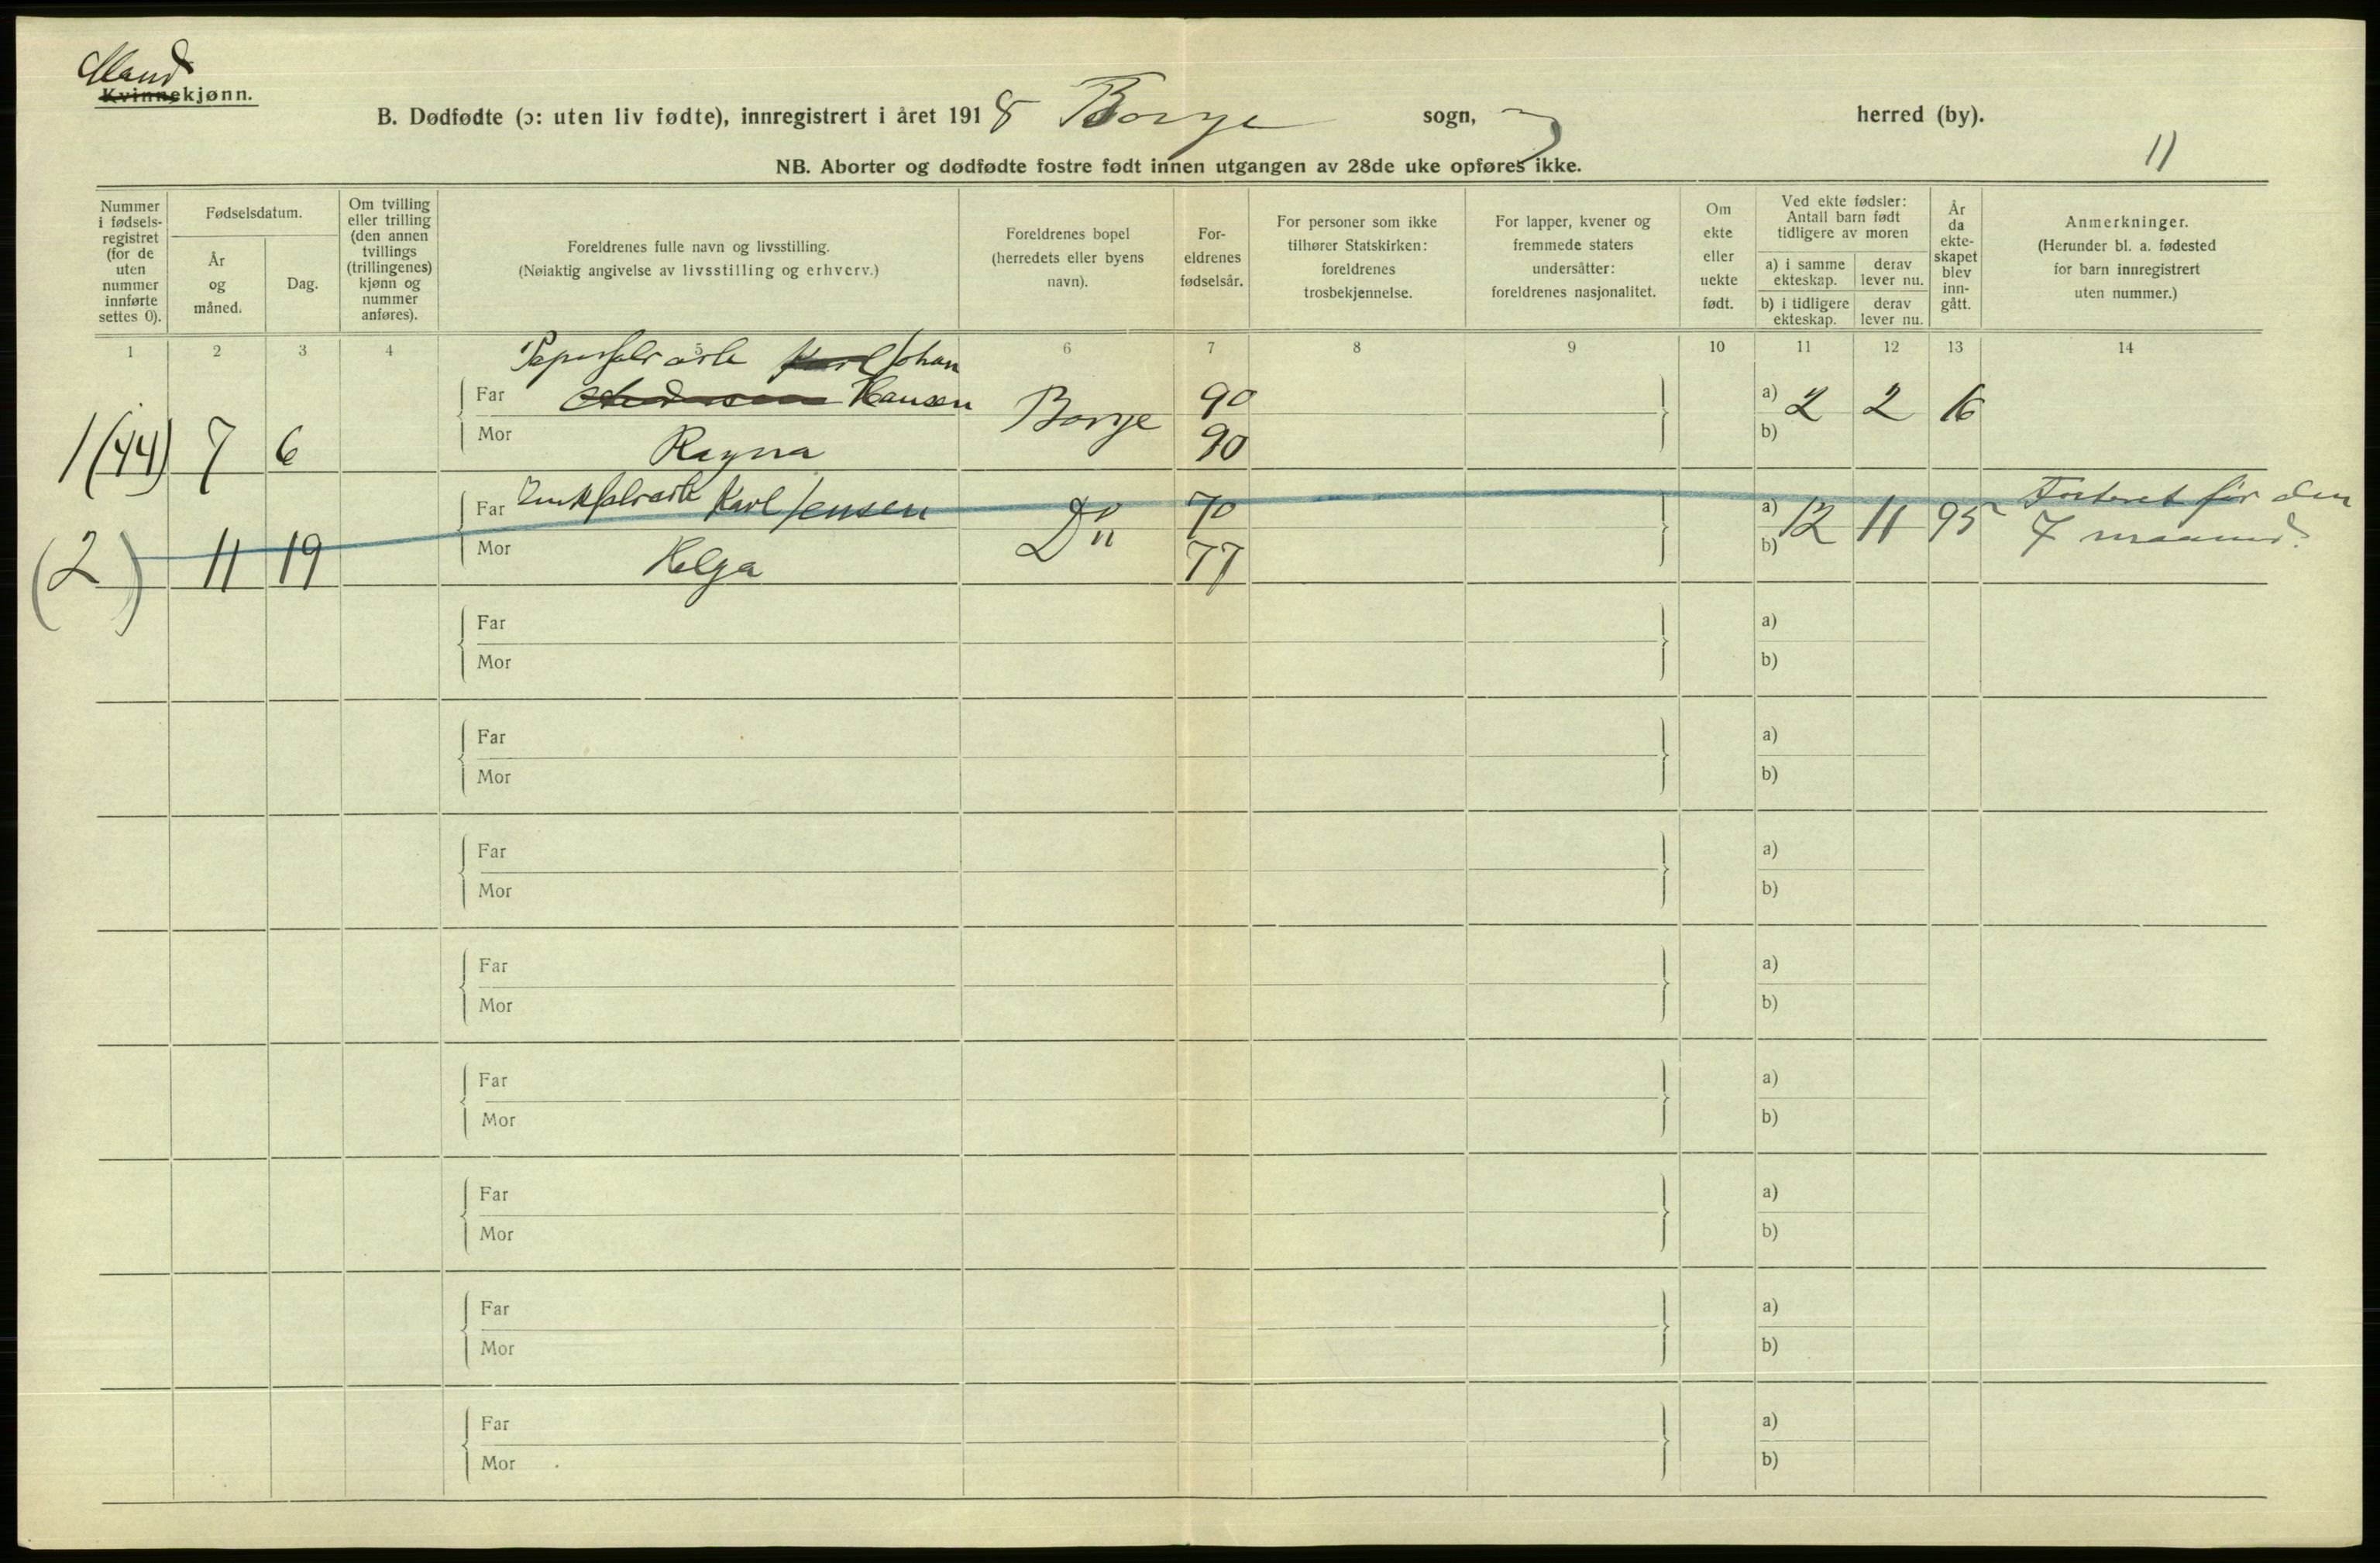 Mand
Kvinnekjønn.
B. Dødfødte (ɔ: uten liv fødte), innregistrert i året 1918 Borge sogn, herred (by).
NB. Aborter og dødfødte fostre født innen utgangen av 28de uke opføres ikke.
11
Nummer i fødsels-registret (for de uten nummer innførte settes 0).
Fødselsdatum.
År og måned.
Dag.
Om tvilling eller trilling (den annen tvillings (trillingenes) kjønn og nummer anføres).
Foreldrenes fulle navn og livsstilling.
(Nøiaktig angivelse av livsstilling og erhverv.)
Foreldrenes bopel (herredets eller byens navn).
For-eldrenes fødselsår.
For personer som ikke tilhører Statskirken: foreldrenes trosbekjennelse.
For lapper, kvener og fremmede staters undersåtter: foreldrenes nasjonalitet.
Om ekte eller uekte født.
Ved ekte fødsler: Antall barn født tidligere av moren
a) i samme ekteskap.
derav lever nu.
b) i tidligere ekteskap.
derav lever nu.
År da ekte-skapet blev inn-gått.
Anmerkninger.
(Herunder bl. a. fødested for barn innregistrert uten nummer.)
1 2 3 4 5 6 7 8 9 10 11 12 13 14
Karl Johan
Far Hansen Borge 90 a) 2 2 16
1(44) 7 6 Mor Ragna 90 b)
Far Karl Jensen Do 70 a) 12 11 95 Fosteret før den
(2) 11 19 Mor Helga 77 b) 7 maaned?
Far a)
Mor b)
Far a)
Mor b)
Far a)
Mor b)
Far a)
Mor b)
Far a)
Mor b)
Far a)
Mor b)
Far a)
Mor b)
Far a)
Mor b)